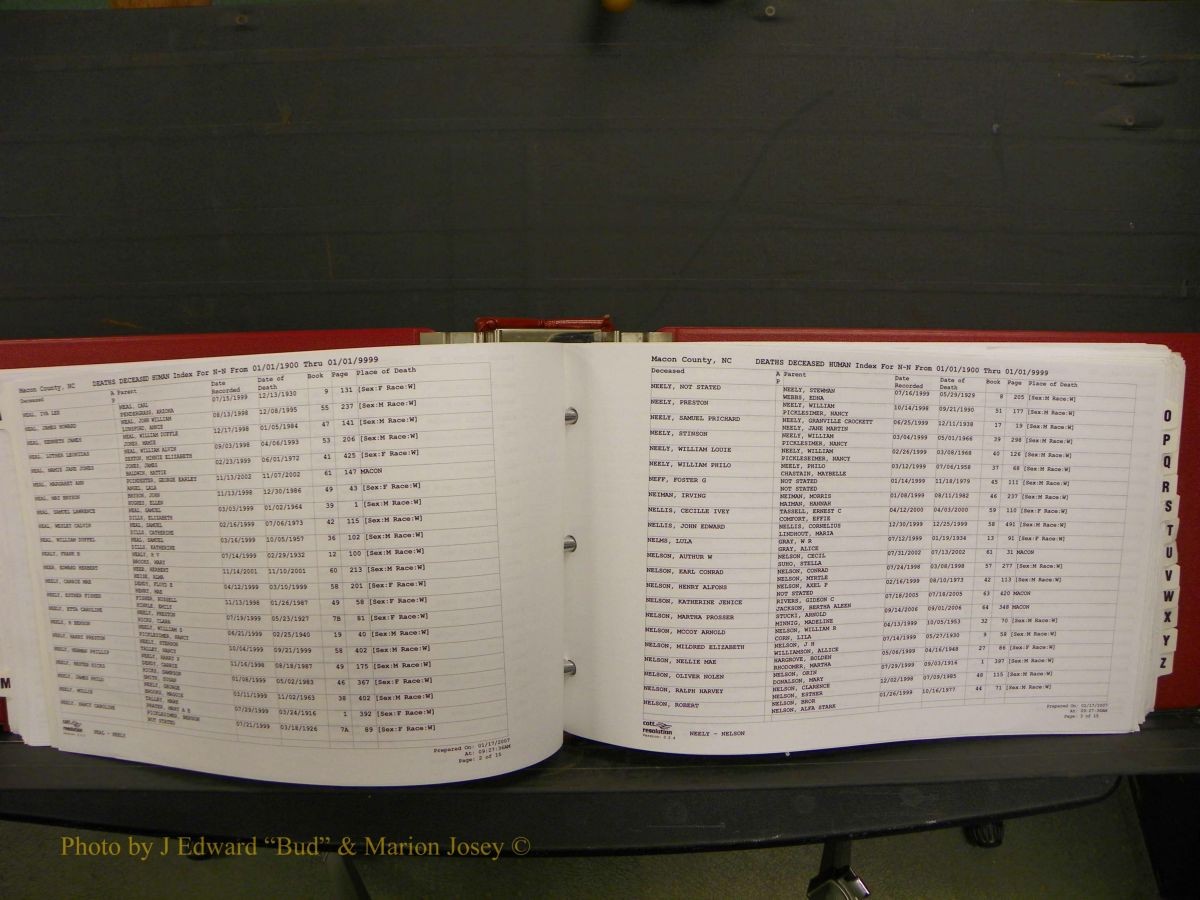 Macon County, NC DEATHS DECEASED HUMAN Index For N-N From 01/01/1900 Thru 01/01/9999
Deceased A Parent Date Recorded Date of Death Book Page Place of Death
P
NEAL, IVA LEE NEAL, CARL 07/15/1999 12/13/1930 9 131 [Sex:F Race:W]
PENDERGRASS, ERICHA
NEAL, JAMES HOWARD NEAL, JOHN WILLIAM 08/13/1998 12/08/1995 55 237 [Sex:M Race:W]
LUNSFORD, ANNIE
NEAL, KENNETH JAMES NEAL, WILLIAM DUFFLE 12/17/1998 01/05/1984 47 141 [Sex:M Race:W]
JONES, MAMIE
NEAL, LUTHER LEONIDAS NEAL, WILLIAM ALVIN 09/03/1998 04/06/1993 53 206 [Sex:M Race:W]
SEXTON, MINNIE ELIZABETH
NEAL, MAMIE JANE JONES JONES, JAMES 02/23/1999 06/01/1972 41 425 [Sex:F Race:W]
BALDWIN, HATTIE
NEAL, MARGARET ANN POINDEXTER, GEORGE EARLEY 11/13/2002 11/07/2002 61 147 MACON
ANGEL, LALA
NEAL, BRYSON BRYSON, JOHN 11/13/1998 12/30/1986 49 43 [Sex:F Race:W]
HUGHES, ELLEN
NEAL, SAMUEL LAWRENCE NEAL, SAMUEL 03/03/1999 01/02/1964 39 1 [Sex:M Race:W]
DILLS, ELIZABETH
NEAL, WESLEY CALVIN NEAL, SAMUEL 02/16/1999 07/06/1973 42 115 [Sex:M Race:W]
DILLS, CATHERINE
NEAL, WILLIAM DUFFEL NEAL, SAMUEL 03/16/1999 10/05/1957 36 102 [Sex:M Race:W]
DILLS, KATHERINE
NEALY, FRANK B NEALY, 07/14/1999 02/29/1932 12 100 [Sex:M Race:W]
BROOKS, MARY
NEEB, EDWARD HERBERT NEEB, HERBERT 11/14/2001 11/10/2001 60 213 [Sex:M Race:W]
HEISE, ALMA
NEELY, CARRIE MAE DENDY, FLOYD 04/12/1999 03/10/1999 58 201 [Sex:F Race:W]
HENRY, MAE
NEELY, ESTHER FISHER FISHER, RUSSELL 11/13/1998 01/26/1987 49 58 [Sex:F Race:W]
EMILY
NEELY, ETTA CAROLINE NEELY, PRESTON 07/19/1999 05/23/1927 7B 81 [Sex:F Race:W]
HICKS, CLARA
NEELY, H BENSON NEELY, WILLIAM 06/21/1999 02/25/1940 19 40 [Sex:M Race:W]
PICKLESIMER, NANCY
NEELY, HARRY PRESTON NEELY, STEWMAN 10/04/1999 09/21/1999 58 402 [Sex:M Race:W]
TALLEY, NANCY
NEELY, HERMAN PHILLIP NEELY, HARRY 11/16/1998 08/18/1987 49 175 [Sex:M Race:W]
DENDY, CARRIE
NEELY, HICKS HICKS, 01/08/1999 05/02/1983 46 367 [Sex:F Race:W]
SMITH, SUSAN
NEELY, JAMES PHILO NEELY, GEORGE 03/11/1999 11/02/1963 38 402 [Sex:M Race:W]
BROOKS, MAGGIE
NEELY, WILLIE TALLEY, MARK 07/29/1999 03/24/1916 1 392 [Sex:F Race:W]
NEELY, NANCY CAROLINE PICKLESIMER, BENSON 07/21/1999 03/18/1926 7A 89 [Sex:F Race:W]
NOT STATED
cott resolution NEAL - NEELY
Prepared On: 01/17/2007
At: 09:27:36AM
Page: 2 of 15
Macon County, NC DEATHS DECEASED HUMAN Index For N-N From 01/01/1900 Thru 01/01/9999
Deceased A Parent Date Recorded Date of Death Book Page Place of Death
P
NEELY, NOT STATED NEELY, STEWMAN 07/16/1999 05/29/1929 8 205 [Sex:M Race:W]
WEBBS, EDNA
NEELY, PRESTON NEELY, WILLIAM 10/14/1998 09/21/1990 51 177 [Sex:M Race:W]
PICKLESIMER, NANCY
NEELY, SAMUEL PRICHARD NEELY, GRANVILLE CROCKETT 06/25/1999 12/11/1938 17 19 [Sex:M Race:W]
NEELY, JANE MARTIN
NEELY, STINSON NEELY, WILLIAM 03/04/1999 05/01/1966 39 298 [Sex:M Race:W]
PICKLESIMER, NANCY
NEELY, WILLIAM LOUIE NEELY, WILLIAM 02/26/1999 03/08/1968 40 126 [Sex:M Race:W]
PICKLESEIMER, NANCY
NEELY, WILLIAM PHILO NEELY, PHILO 03/12/1999 07/06/1958 37 68 [Sex:M Race:W]
CHASTAIN, MAYBELLE
NEFF, FOSTER G NOT STATED 01/14/1999 11/18/1979 45 111 [Sex:M Race:W]
NOT STATED
NEIMAN, IRVING NEIMAN, MORRIS 01/08/1999 08/11/1982 46 237 [Sex:M Race:W]
MAIMAN, HANNAH
NELLIS, CECILLE IVEY TASSELL, ERNEST C 04/12/2000 04/03/2000 59 110 [Sex:F Race:W]
COMFORT, EFFIE
NELLIS, JOHN EDWARD NELLIS, CORNELIUS 12/30/1999 12/25/1999 58 491 [Sex:M Race:W]
LINDHOUT, MARIA
NELMS, LULA GRAY, W R 07/12/1999 01/19/1934 13 91 [Sex:F Race:W]
GRAY, ALICE
NELSON, AUTHUR W NELSON, CECIL 07/31/2002 07/13/2002 61 31 MACON
SUHO, STELLA
NELSON, EARL CONRAD NELSON, CONRAD 07/24/1998 03/08/1998 57 277 [Sex:M Race:W]
NELSON, MYRTLE
NELSON, HENRY ALFONS NELSON, AXEL F 02/16/1999 08/10/1973 42 113 [Sex:M Race:W]
NOT STATED
NELSON, KATHERINE JENICE RIVERS, GIDEON C 07/18/2005 07/18/2005 63 420 MACON
JACKSON, BERTHA ALEEN
NELSON, MARTHA PROSSER STUCKI, ARNOLD 09/14/2006 09/01/2006 64 348 MACON
MINNIG, MADELINE
NELSON, MCCOY ARNOLD NELSON, WILLIAM R 04/13/1999 10/05/1953 32 70 [Sex:M Race:W]
CORN, LILA
NELSON, MILDRED ELIZABETH NELSON, J H 07/14/1999 05/27/1930 9 58 [Sex:M Race:W]
WILLIAMSON, ALLICE
NELSON, NELLIE MAE HARGROVE, BOLDEN 05/06/1999 04/16/1948 27 86 [Sex:F Race:W]
RHODOMER, MARTHA
NELSON, OLIVER NOLEN NELSON, ORIN 07/29/1999 09/03/1916 1 397 [Sex:M Race:W]
DONALSON, MARY
NELSON, RALPH HARVEY NELSON, CLARENCE 12/02/1998 07/09/1985 48 115 [Sex:M Race:W]
NELSON, ESTHER
NELSON, ROBERT NELSON, BROR 01/26/1999 10/16/1977 44 71 [Sex:M Race:W]
NELSON, ALFA STARK
cott resolution NEELY - NELSON
Prepared On: 01/17/2007
At: 09:27:36AM
Page: 3 of 15
M
O
P
Q
R
S
T
U
V
W
X
Y
Z
Photo by J Edward “Bud” & Marion Josey ©